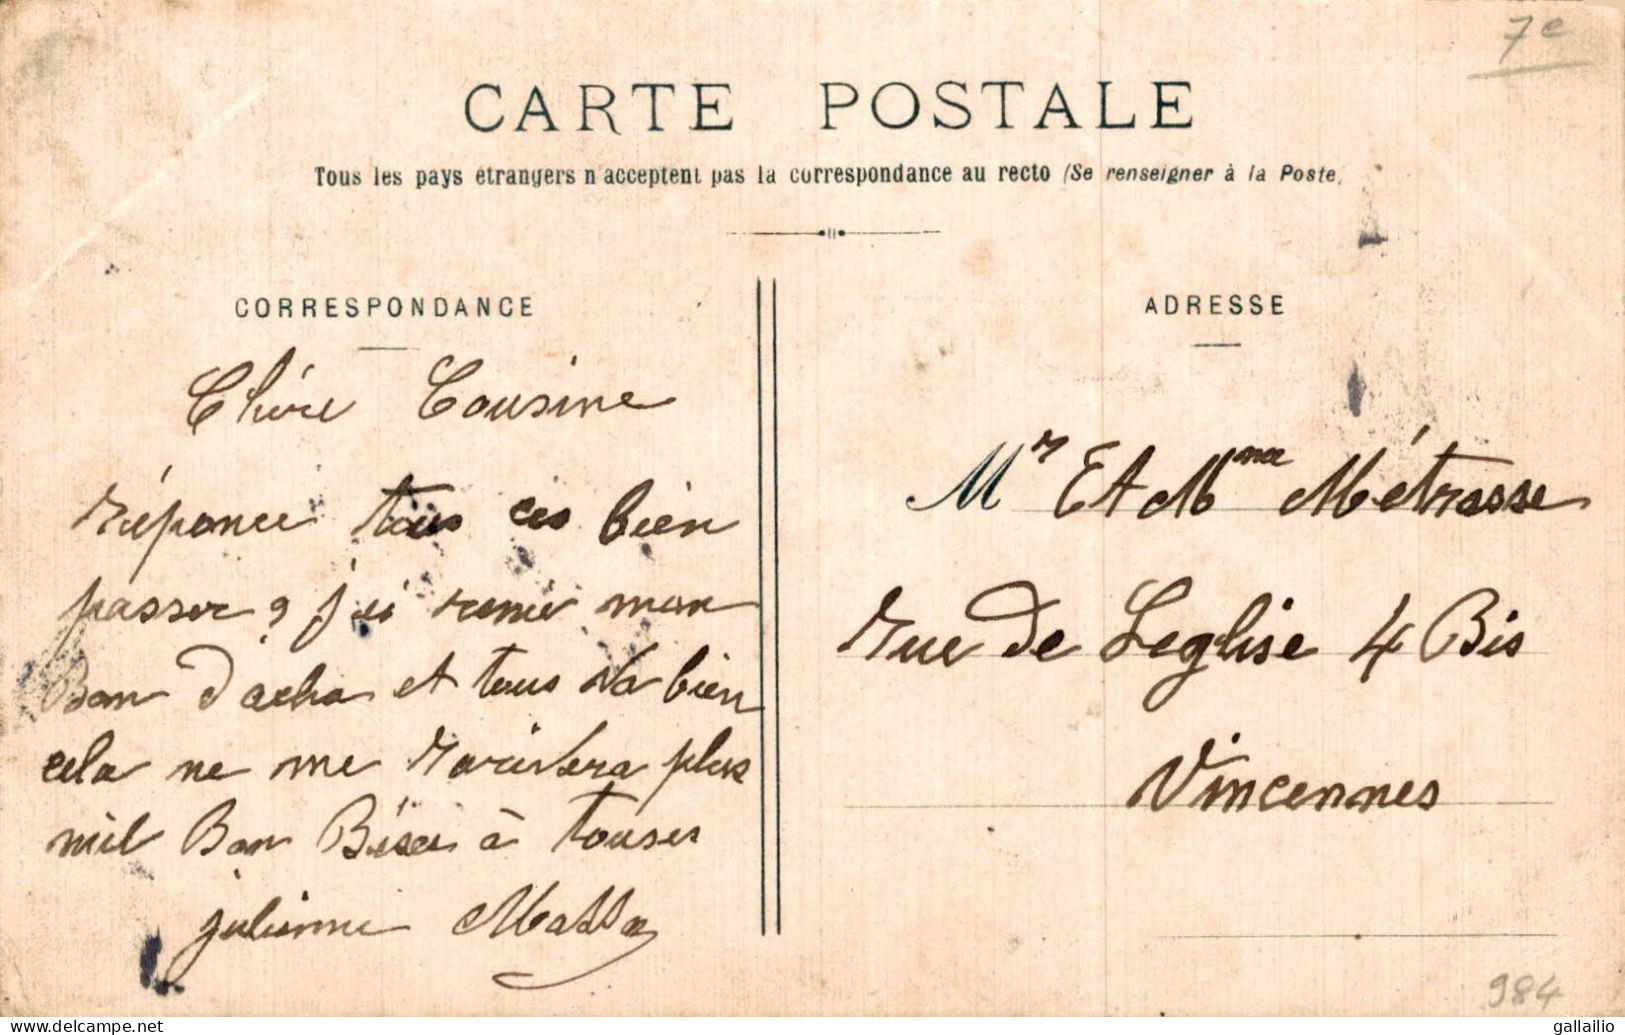 7e
CARTE POSTALE
Tous les pays étrangers n'acceptent pas la correspondance au recto (Se renseigner à la Poste)
CORRESPONDANCE
Chére Cousine
réponce tous ces bien
passer ? j'ei remi mon
Bon d'acha et tous va bien
cela ne me plus
mil Bon à touses
julienne
ADRESSE
Mr Et Mme Métrasse
rue de Leglise 4 Bis
Vincennes
984
gallailio